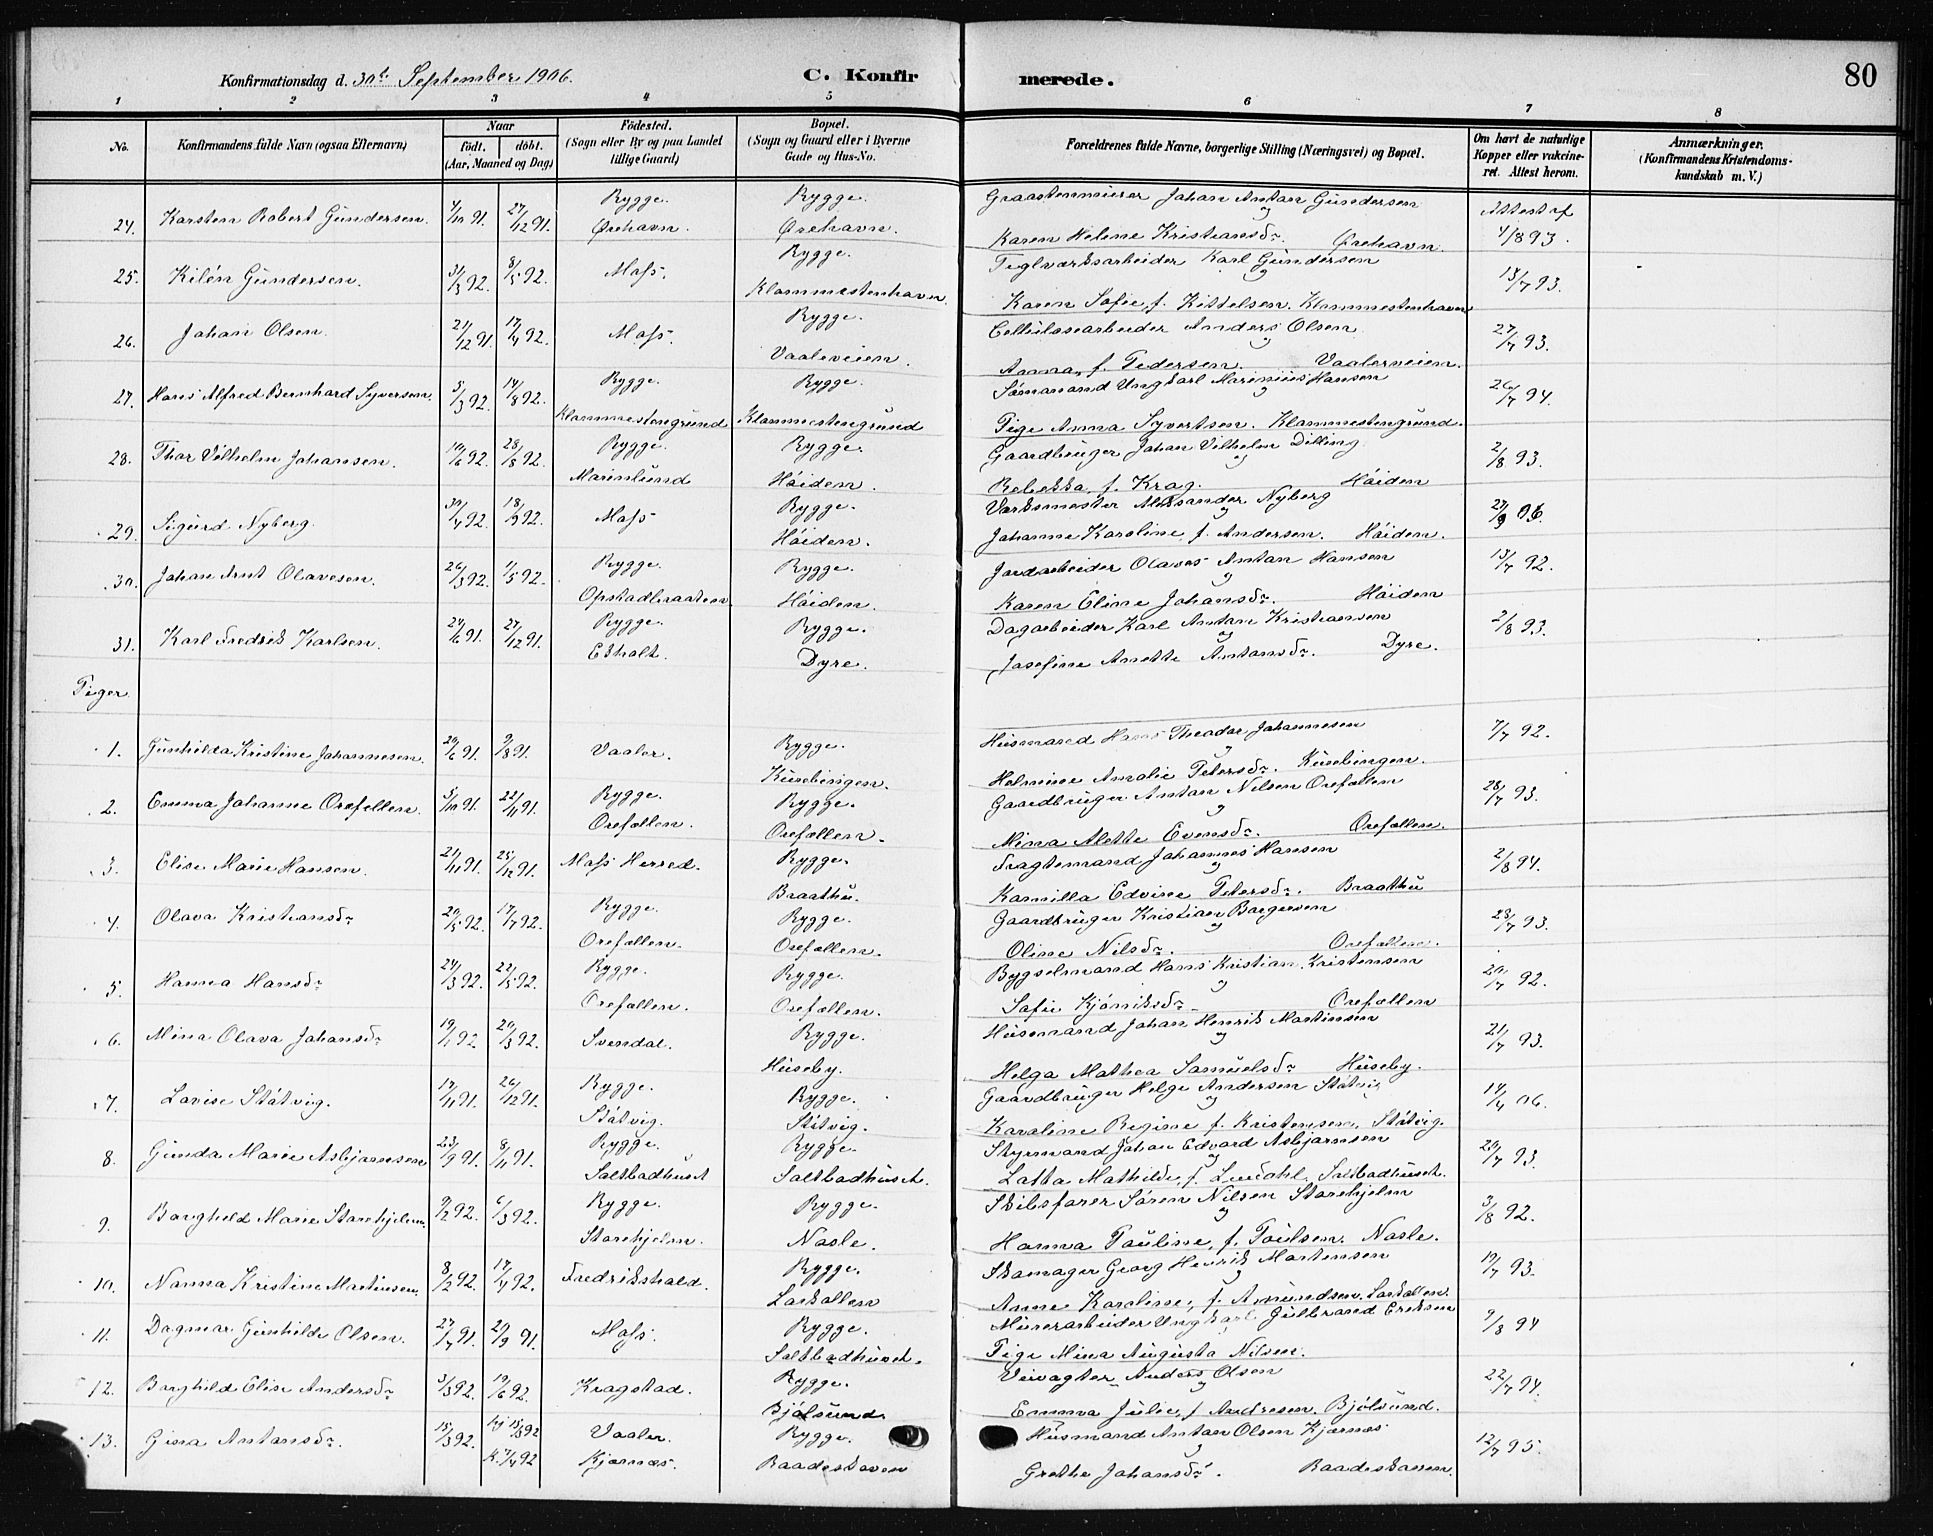 80
Konfirmationsdag d. 30te September 1906. C. Konfirmerede.
1 2 3 4 5 6 7 8
No. Konfirmandens fulde Navn (ogsaa Efternavn) Naar født. døbt. (Aar, Maaned og Dag) Fødested. (Sogn eller By og paa Landet tillige Gaard) Bopæl. (Sogn og Gaard eller i Byerne Gade og Hus-No. Forældrenes fulde Navne, borgerlige Stilling (Næringsvei) og Bopæl. Om havt de naturlige Kopper eller vakcineret. Attest herom. Anmærkninger. (Konfirmandens Kristendomskundskab m. V.)
24. Karsten Robert Gundersen. 4/10 91. 27/12 91. Rygge. Ørehavn. Rygge. Ørehavn. Graastenmurer Johan Anton Gundersen og Karen Helene Kristiansdr. Ørehavn. Attest af 4/8 93.
25. Kilén Gundersen. 31/3 92. 8/5 92. Moss. Rygge. Klommestenhavn. Teglværksarbeider Karl Gundersen og Karen Sofie f. Kittelsen. Klommestenhavn 13/7 93.
26. Johan Olsen. 21/12 91. 17/4 92. Moss. Rygge. Vaaleveien. Cellulosearbeider Anders Olsen og Anna, f. Pedersen. Vaalerveien. 27/7 93.
27. Hans Alfred Bernhard Syversen. 5/3 92. 14/8 92. Rygge. Klommestengrund Rygge. Klommestengrund Sømand Ungkarl Marinius Hansen og Pige Anna Syvertsen. Klommestengrund. 26/7 94.
28. Thor Vilhelm Johansen. 10/6 92. 28/8 92. Rygge. Marienlund Rygge. Høiden. Gaardbruger Johan Vilhelm Dilling og Rebekka, f. Krag. Høiden 2/8 93.
29. Sigurd Nyberg. 30/4 92. 18/9 92. Moss Rygge. Høiden. Værksmester Aleksander Nyberg og Johanne Karoline f. Andersen. Høiden. 27/9 06.
30. Johan Arnt Olavesen. 26/3 92. 1/5 92. Rygge. Opstadbraaten. Rygge. Høiden. Jordarbeider Olaves Anton Hansen og Karen Eline Johansdr. Høiden 13/7 92.
31. Karl Fredrik Karlsen. 24/6 91. 27/12 91. Rygge. Ekholt. Rygge. Dyre. Dagarbeider Karl Anton Kristiansen og Josefine Anette Antonsdr. Dyre. 2/8 93.
Piger.
1. Gunhilda Kristine Johannesen. 20/6 91. 9/8 91. Vaaler. Rygge. Kusebingen. Husmand Hans Theodor Johannesen og Helmine Amalie Petersdr. Kusebingen. 7/7 92.
2. Emma Johanne Orefellen. 3/10 91. 22/11 91. Rygge. Orefellen. Rygge. Orefellen. Gaardbruger Anton Nilsen Orefellen og Mina Alette Evensdr. Orefellen. 28/7 93.
3. Elise Marie Hansen. 21/11 91. 25/12 91. Moss Herred. Rygge. Braathu. Fragtemand Johannes Hansen og Kamilla Edvine Petersdr. Braathu 2/8 94.
4. Olava Kristiansdr 20/5 92. 17/7 92. Rygge. Orefellen. Rygge. Orefellen. Gaardbruger Kristian Borgersen og Oline Nilsdr. Orefellen. 28/7 93.
5. Hanna Hansdr 24/3 92. 22/5 92. Rygge. Orefellen. Rygge. Orefellen. Bygselmand Hans Kristian Kristensen og Sofie Kjøniksdr. Orefellen 20/7 92.
6. Mina Olava Johansdr 19/1 92. 20/3 92. Svendal. Rygge. Huseby. Husmand Johan Henrik Martinsen og Helga Mathea Samuelsdr Huseby. 21/7 93.
7. Lovise Støtvig. 17/11 91. 26/12 91. Rygge. Støtvig. Rygge. Støtvig. Gaardbruger Helge Andersen Støtvig og Karoline Regine f. Kristensen. Støtvig. 14/4 06.
8. Gunda Marie Asbjørnsen 23/9 91. 8/11 91. Rygge. Saltbodhuset Rygge. Saltbodhuset. Styrmand Johan Edvard Asbjørnsen og Lotta Mathilde, f. Lindahl. Saltbodhuset. 20/7 93.
9. Borghild Marie Storehjelm. 9/2 92. 6/3 92. Rygge. Storehjelm. Rygge. Nosle. Skibsfører Søren Nilsen Storehjelm og Hanna Pauline, f. Poulsen. Nosle. 3/8 92.
10. Nanna Kristine Martinsen. 8/2 92. 17/4 92. Fredrikshald. Rygge. Larkollen Skomager Georg Henrik Mortensen og Anne Karoline, f. Amundsen. Larkollen. 19/7 93.
11. Dagmar Gunhilde Olsen. 27/7 91. 20/9 91. Moss. Rygge. Saltbodhuset. Murerarbeider Ungkarl Gulbrand Eriksen Pige Mina Augusta Nilsen. 9/8 94
12. Borghild Elise Andersdr 3/3 92. 19/6 92. Kragstad. Rygge. Bjølsund. Veivogter Anders Olsen og Emma Julie, f. Andresen. Bjølsund. 22/7 94.
13. Gina Antonsdr. 15/3 92. hj 15/3 92 k. 17/4 92 Vaaler. Kjærnæs. Rygge. Raadeskoven Husmand Anton Olsen Kjærnæs og Grethe Johansdr. Raadeskoven. 12/7 95.